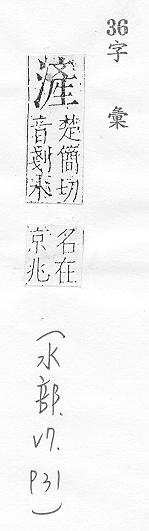 36字彙
滻
楚簡切
音剗水
名在
京兆
(水部. V7. P31)